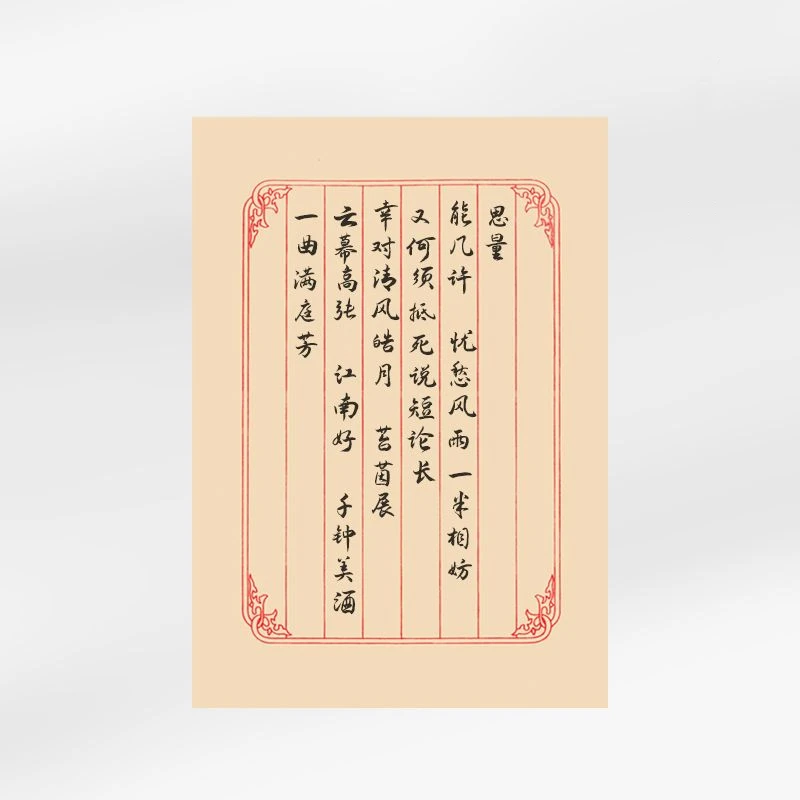 思量
能几许 忧愁风雨一半相妨
又何须抵死说短论长
幸对清风皓月 苔茵展
云幕高张 江南好 千钟美酒
一曲满庭芳